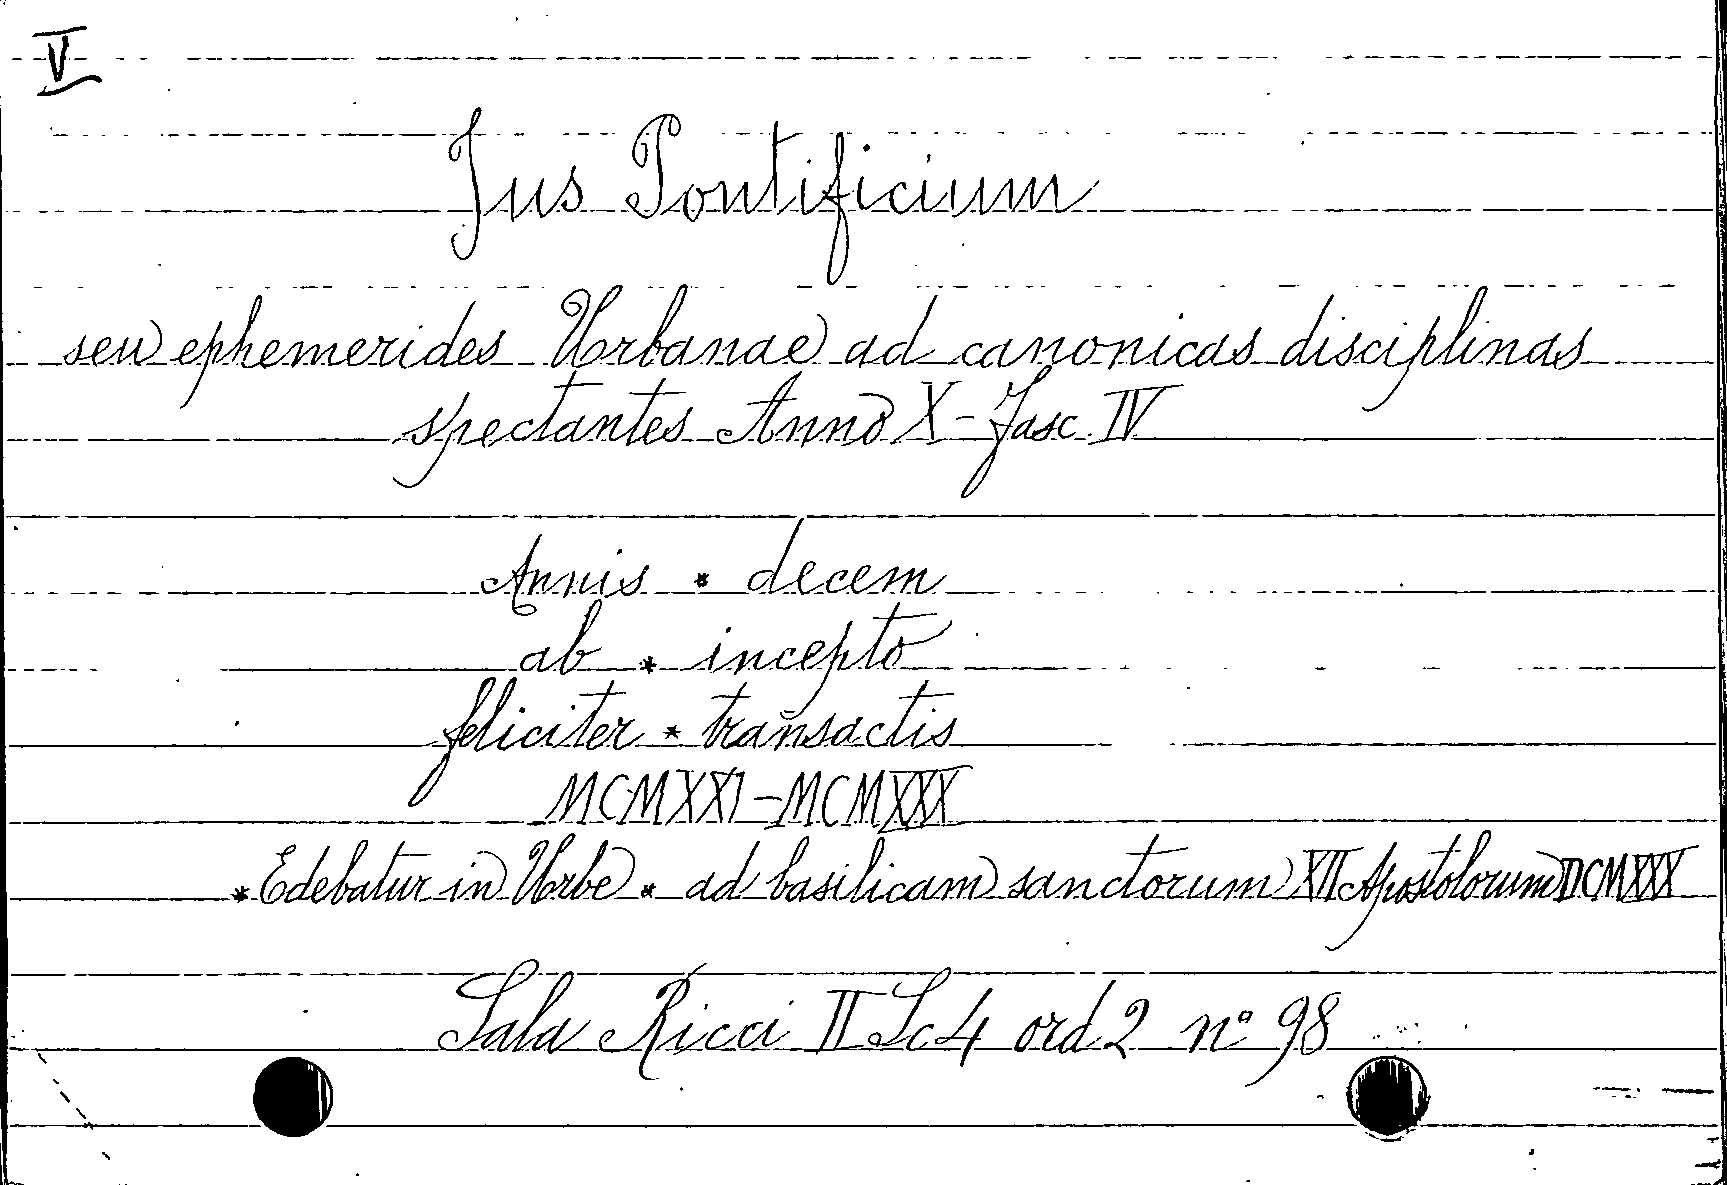 V
Jus Pontificium
seu ephemerides Urbanae ad canonicas disciplinas
spectantes Anno X - Fasc IV
Annis * decem
ab * incepto
feliciter * transactis
MCMXXI - MCMXXX
* Edebatur in Urbe * ad basilicam sanctorum XII Apostolorum DCMXXX
Sala Ricci II Sc 4 ord 2 n° 98